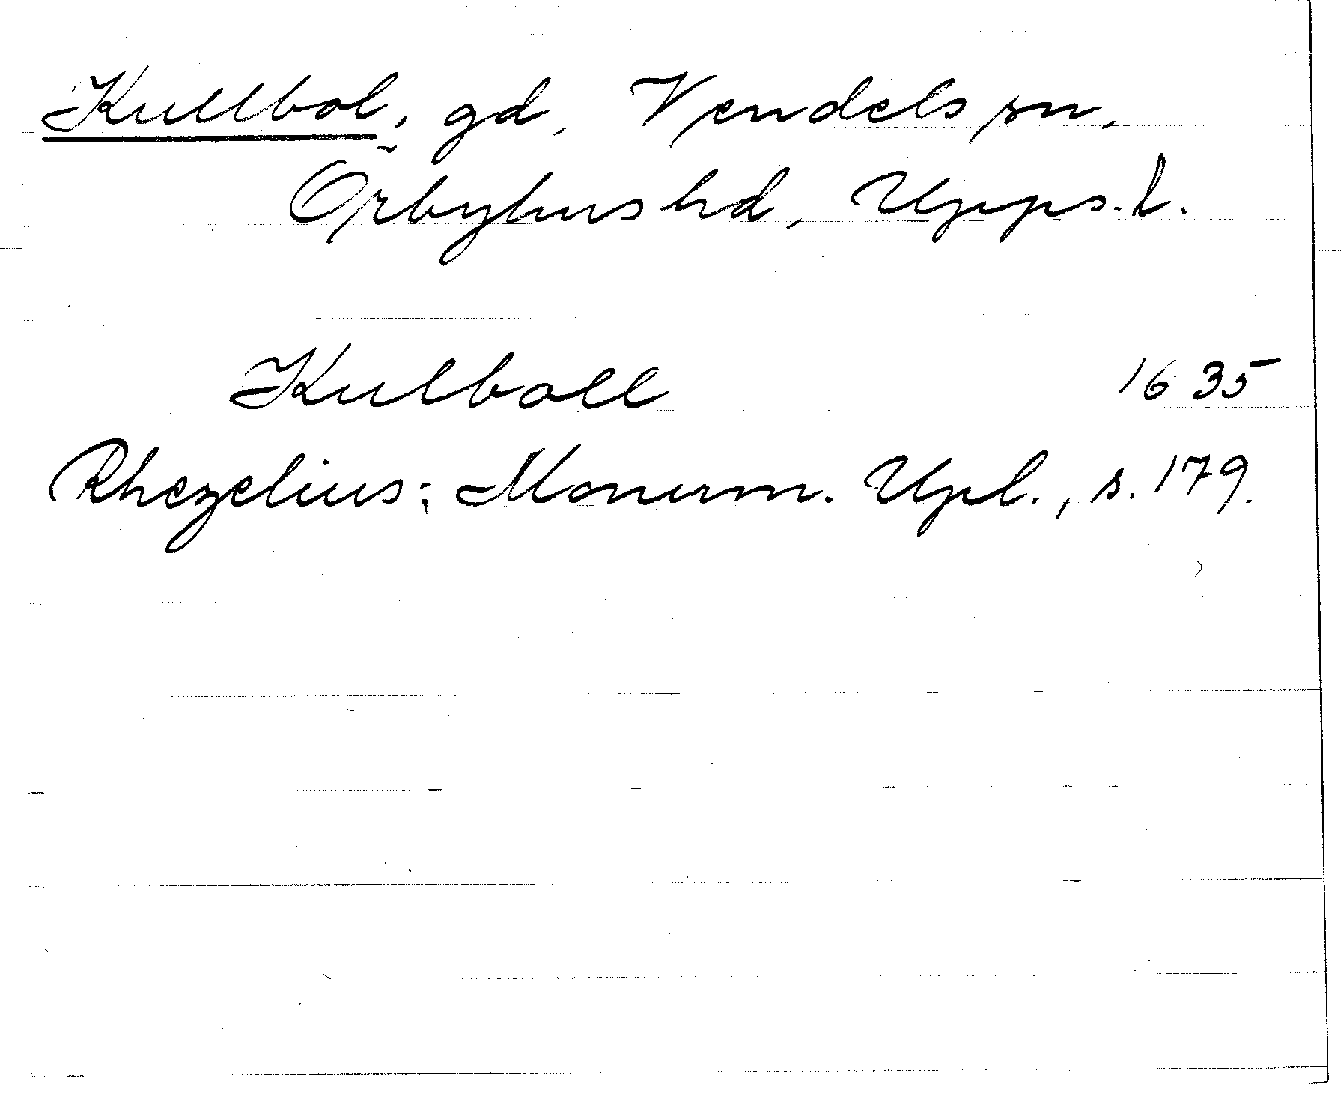 Kullbol, gd, Vendels sn,
Örbyhus hd, Upps.l.
Kulboll 1635
Rhezelius; Monum. Upl., s. 179.